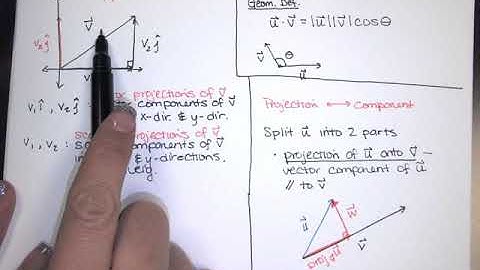 v⃗
v₂ĵ
v₂ĵ
projections of v⃗
v₁î, v₂ĵ : components of v⃗
x-dir. & y-dir.
projections of v⃗
v₁, v₂ : components of v⃗
& y-directions.
Geom. Def.
u⃗ · v⃗ = |u⃗||v⃗|cosθ
v⃗
θ
u⃗
Projection ⟷ Component
Split u⃗ into 2 parts
• projection of u⃗ onto v⃗ –
vector component of u⃗
// to v⃗
u⃗
w⃗
v⃗